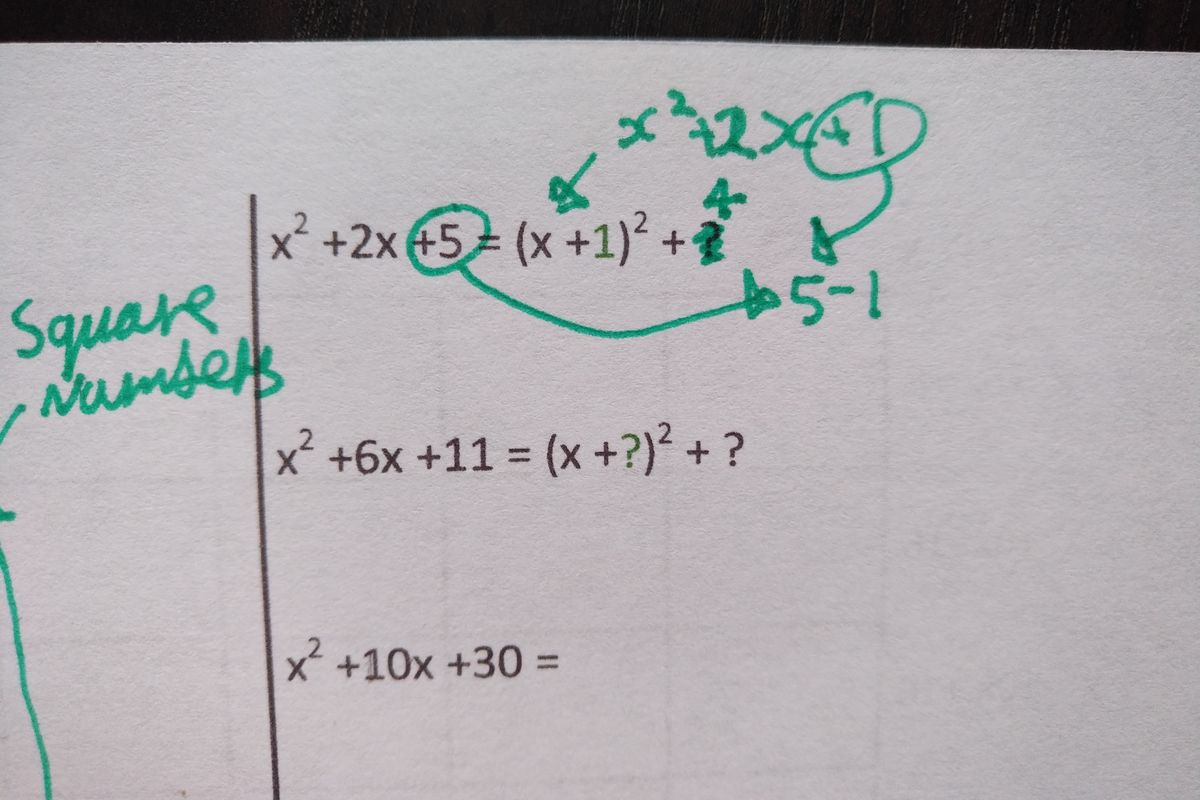 x² +2x +1
4
x² +2x +5 = (x +1)² + ?
5-1
Square
Numbers
x² +6x +11 = (x +?)² + ?
x² +10x +30 =